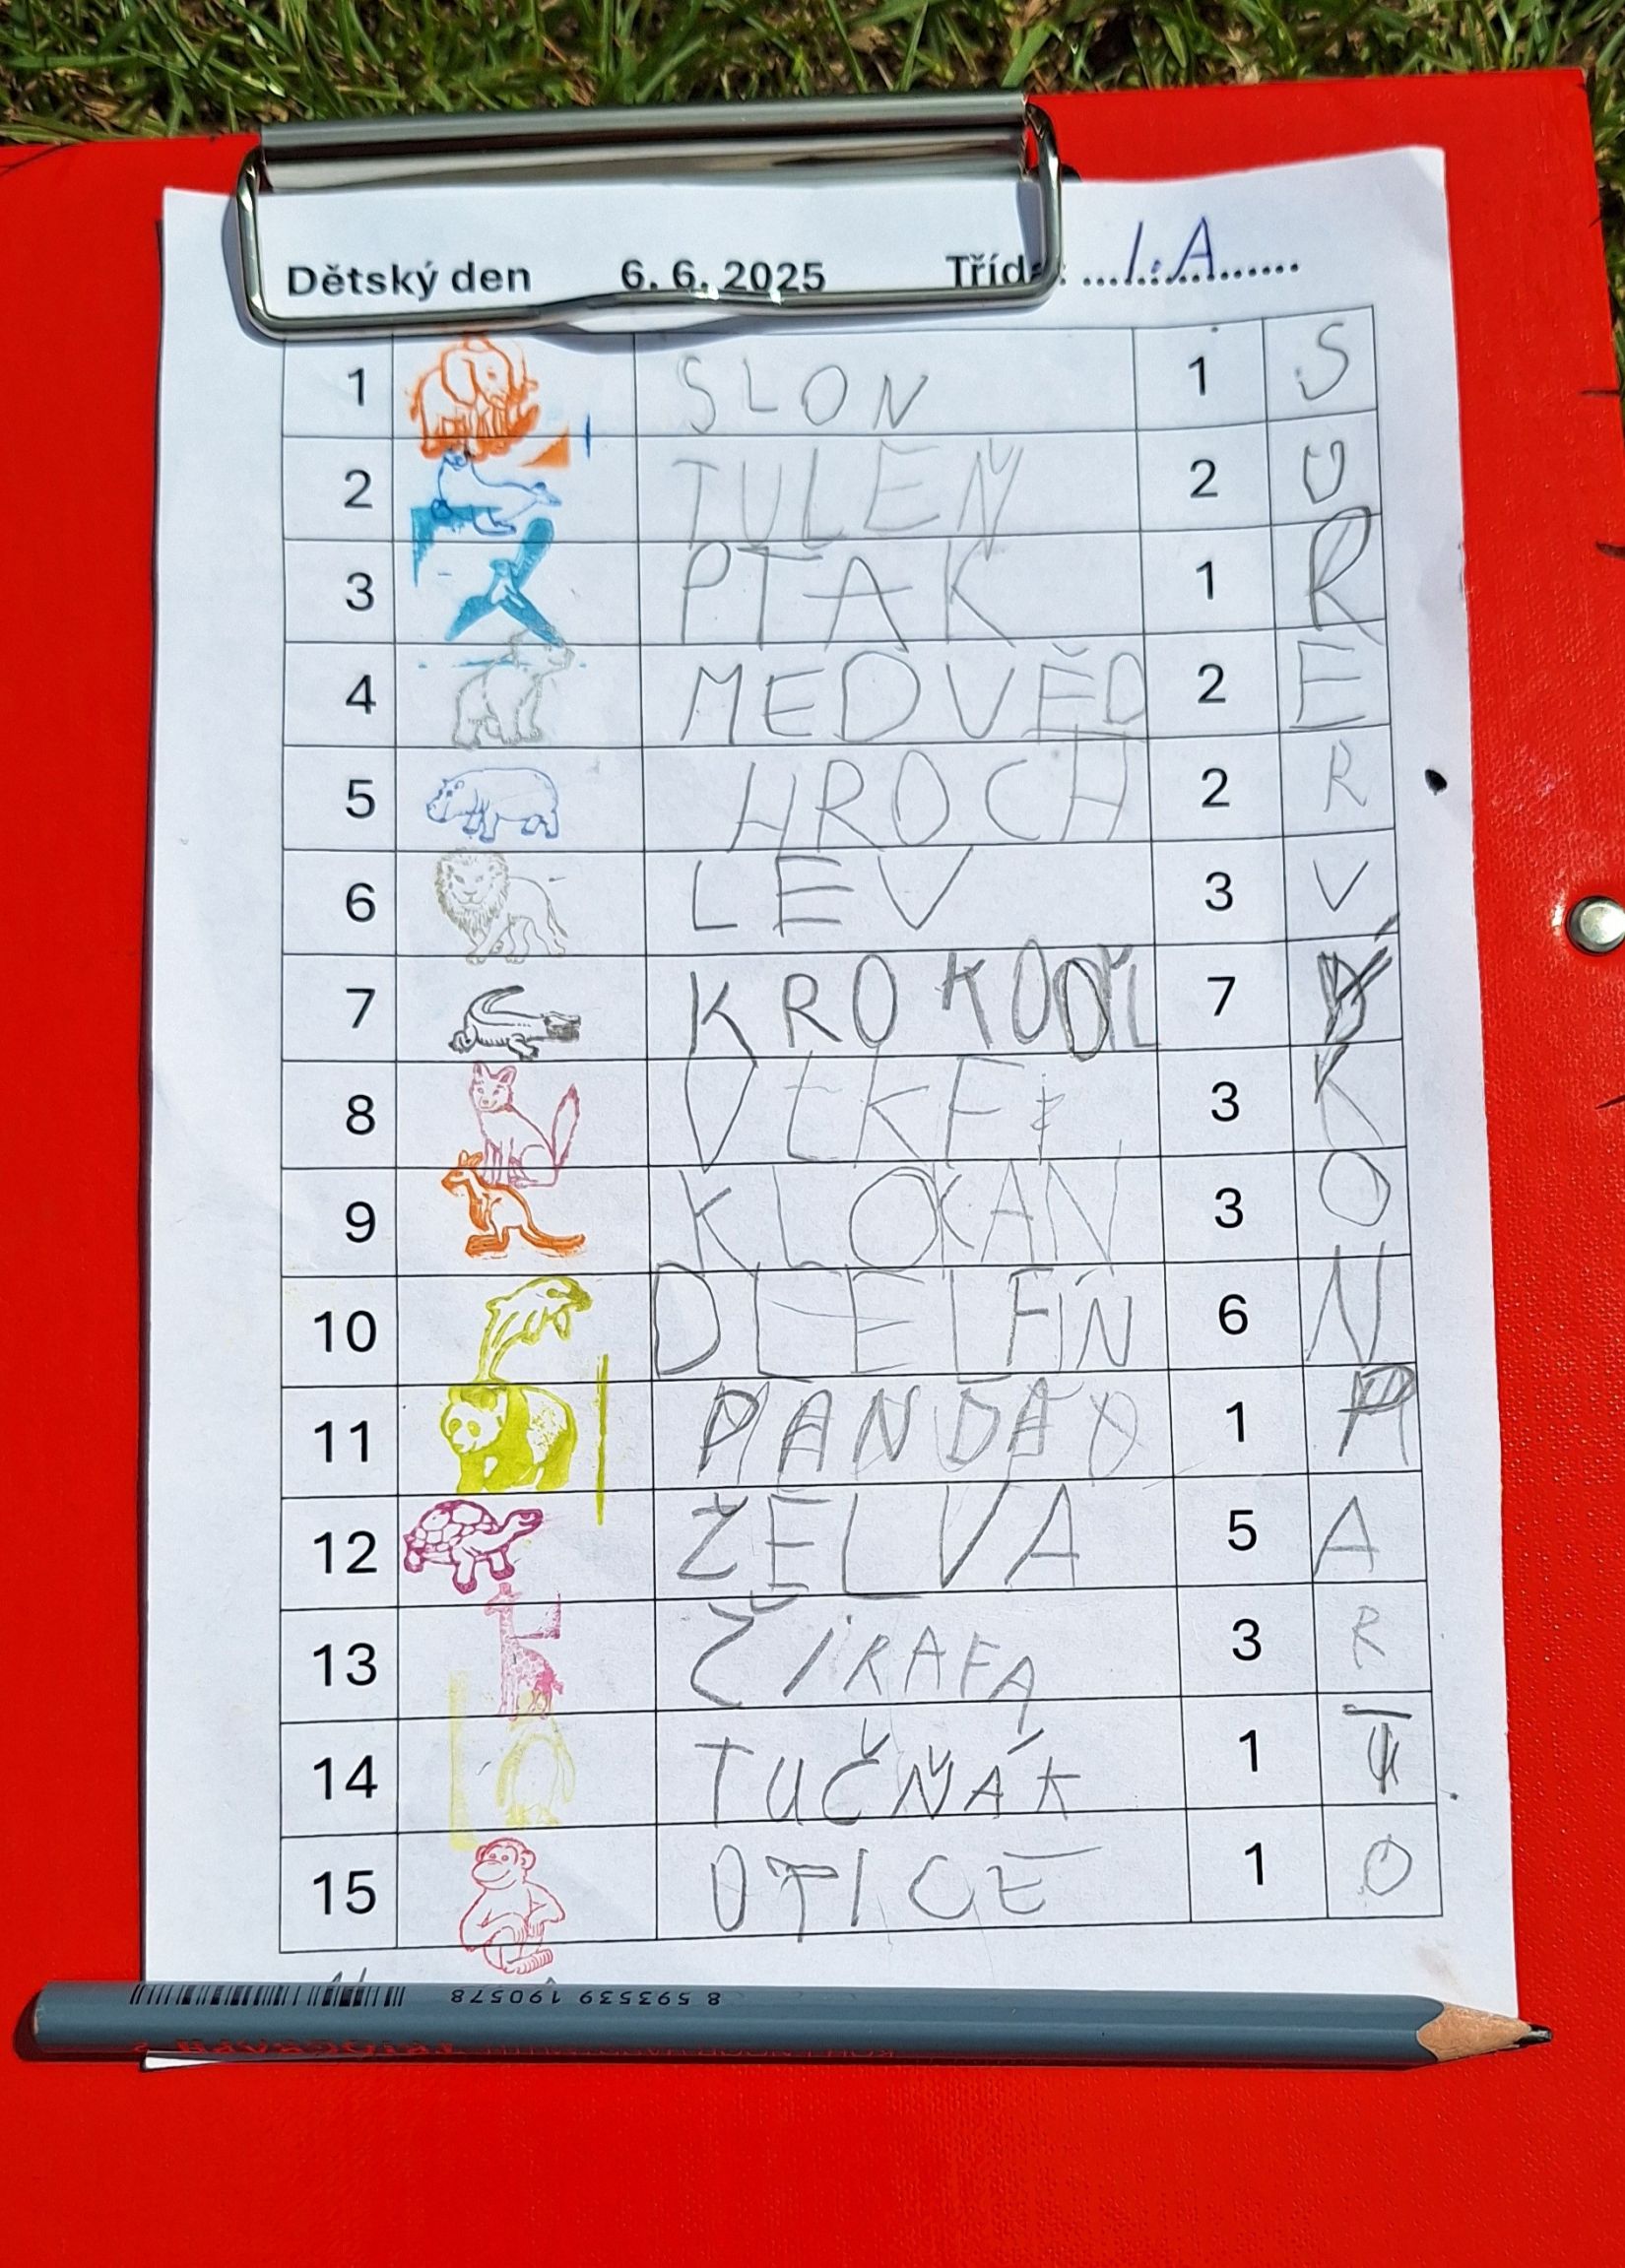 Dětský den 6. 6. 2025 Třída: 1.A
1 SLON 1 S
2 TULEŇ 2 U
3 PTAK 1 R
4 MEDVĚD 2 E
5 HROCH 2 R
6 LEV 3 V
7 KROKODÝL 7
8 3 K
9 KLOKAN 3 O
10 DLELFIN 6 N
11 PANDA 1 P
12 ŽELVA 5 A
13 ŽIRAFA 3 R
14 TUČŇÁK 1
15 OTICE 1 O
8 593539 190578